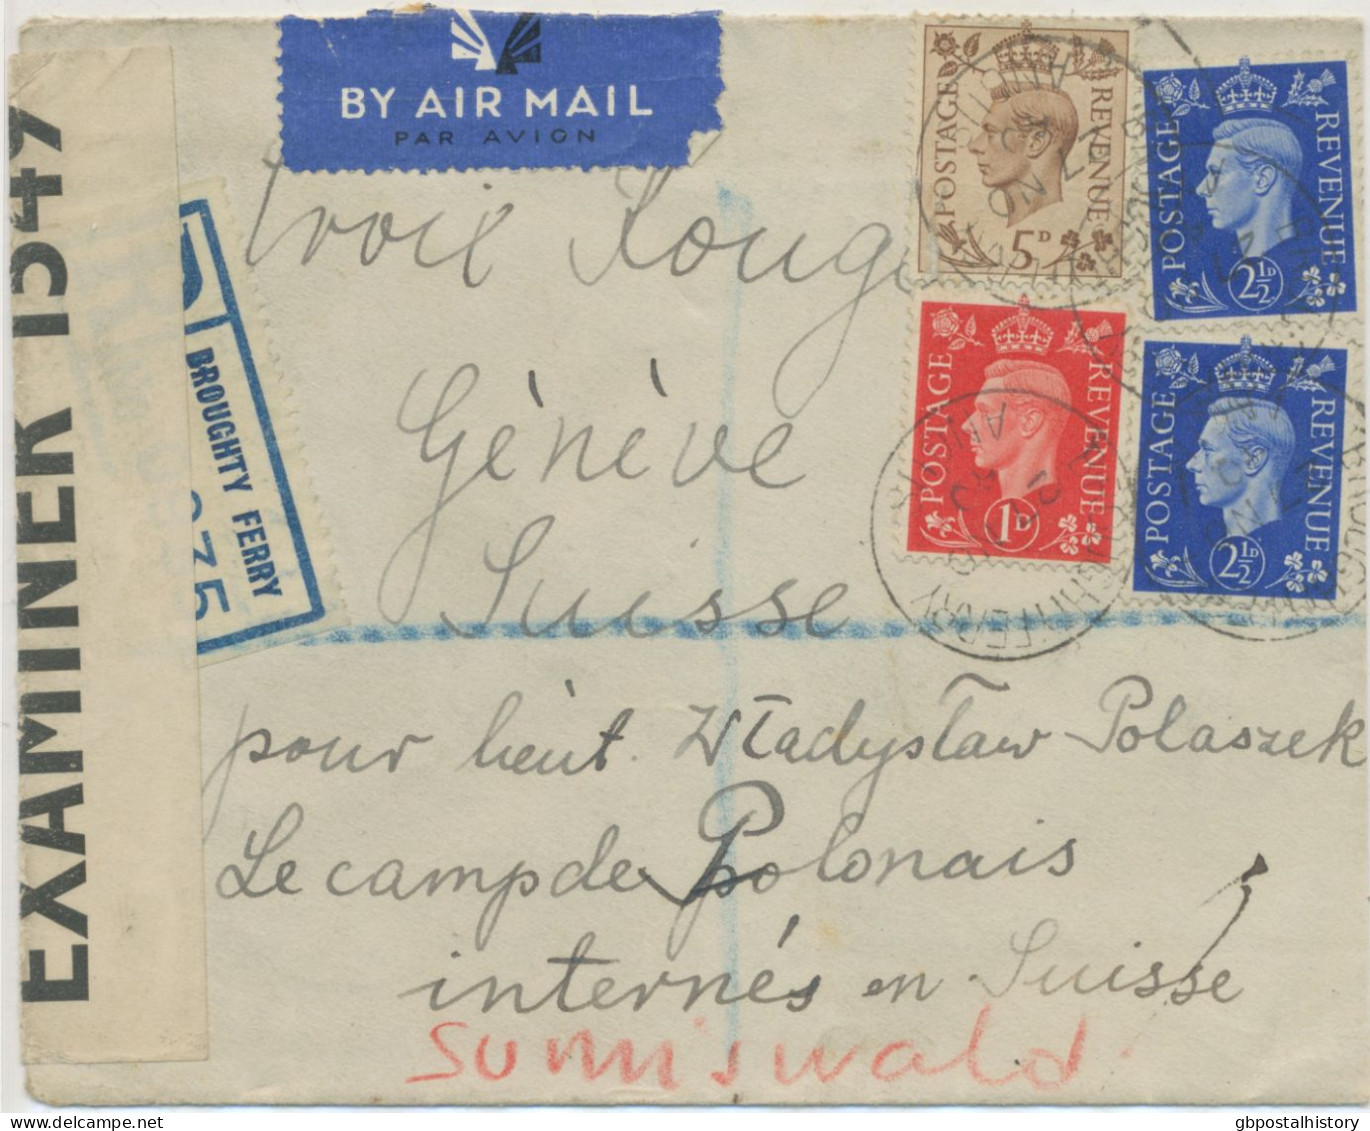 BY AIR MAIL
PAR AVION
EXAMINER 1549
BROUGHTY FERRY
POSTAGE REVENUE
5D
POSTAGE REVENUE
2½D
POSTAGE REVENUE
1D
POSTAGE REVENUE
2½D
Croix Rouge
Génève
Suisse
pour lieut. Władysław Polaszek
Le camp de Polonais
internés en Suisse
Sumiswald
gbpostalhistory